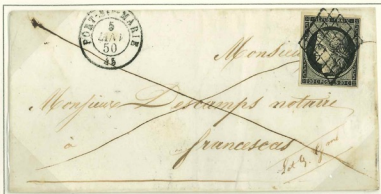 PORT-STE-MARIE
5
50
45
Monsieur
Monsieur Descamps notaire
à francescas